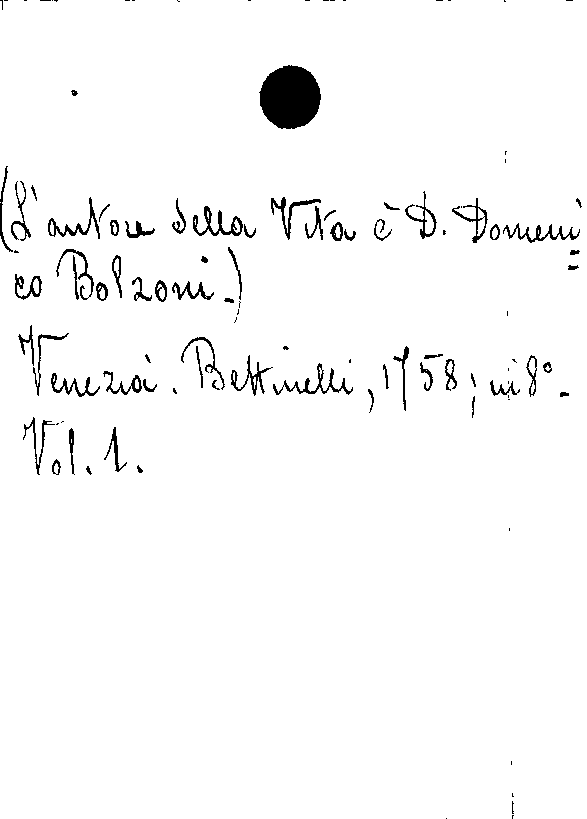 (L'autore della Vita è D. Domeni=
co Bolzoni.)
Venezia. Bettinelli, 1758; in 8°.
Vol. 1.